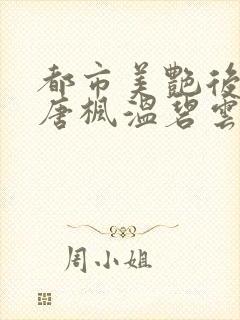 都市美艷後
唐楓溫碧雲
周小姐